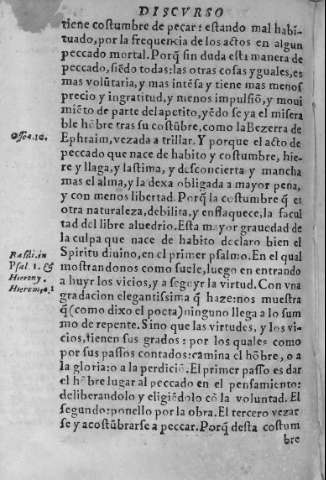 DISCVRSO
tiene costumbre de pecar: estando mal habi-
tuado, por la frequencia de los actos en algun
peccado mortal. Porq̃ sin duda esta manera de
peccado, siẽdo todas: las otras cosas yguales, es
mas volũtaria, y mas intẽsa y tiene mas menos
precio y ingratitud, y menos impulsiõ, y moui
miẽto de parte del apetito, yẽdo se ya el misera
ble hõbre tras su costũbre, como la Bezerra de
Osseæ. 10.
Ephraim, vezada a trillar. Y porque el acto de
peccado que nace de habito y costumbre, hie-
re y llaga, y lastima, y desconcierta y mancha
mas el alma, y la dexa obligada a mayor pena,
y con menos libertad. Porq̃ la costumbre q̃ es
otra naturaleza, debilita, y enflaquece, la facul
tad del libre aluedrio. Esta mayor grauedad de
la culpa que nace de habito declaro bien el
Basili. in
Psal. 1. &
Hierony.
Hierem. 1
Spiritu diuino, en el primer psalmo. En el qual
mostrandonos como suele, luego en entrando
a huyr los vicios, y a seguyr la virtud. Con vna
gradacion elegantissima q̃ haze: nos muestra
q̃ (como dixo el poeta) ninguno llega a lo sum
mo de repente. Sino que las virtudes, y los vi-
cios, tienen sus grados: por los quales como
por sus passos contados: camina el hõbre, o a
la gloria: o a la perdiciõ. El primer passo es dar
el hõbre lugar al peccado en el pensamiento:
deliberandolo y eligiẽdolo cõ la voluntad. El
segundo: ponello por la obra. El tercero vezar
se y acostũbrarse a peccar. Porq̃ desta costum
bre